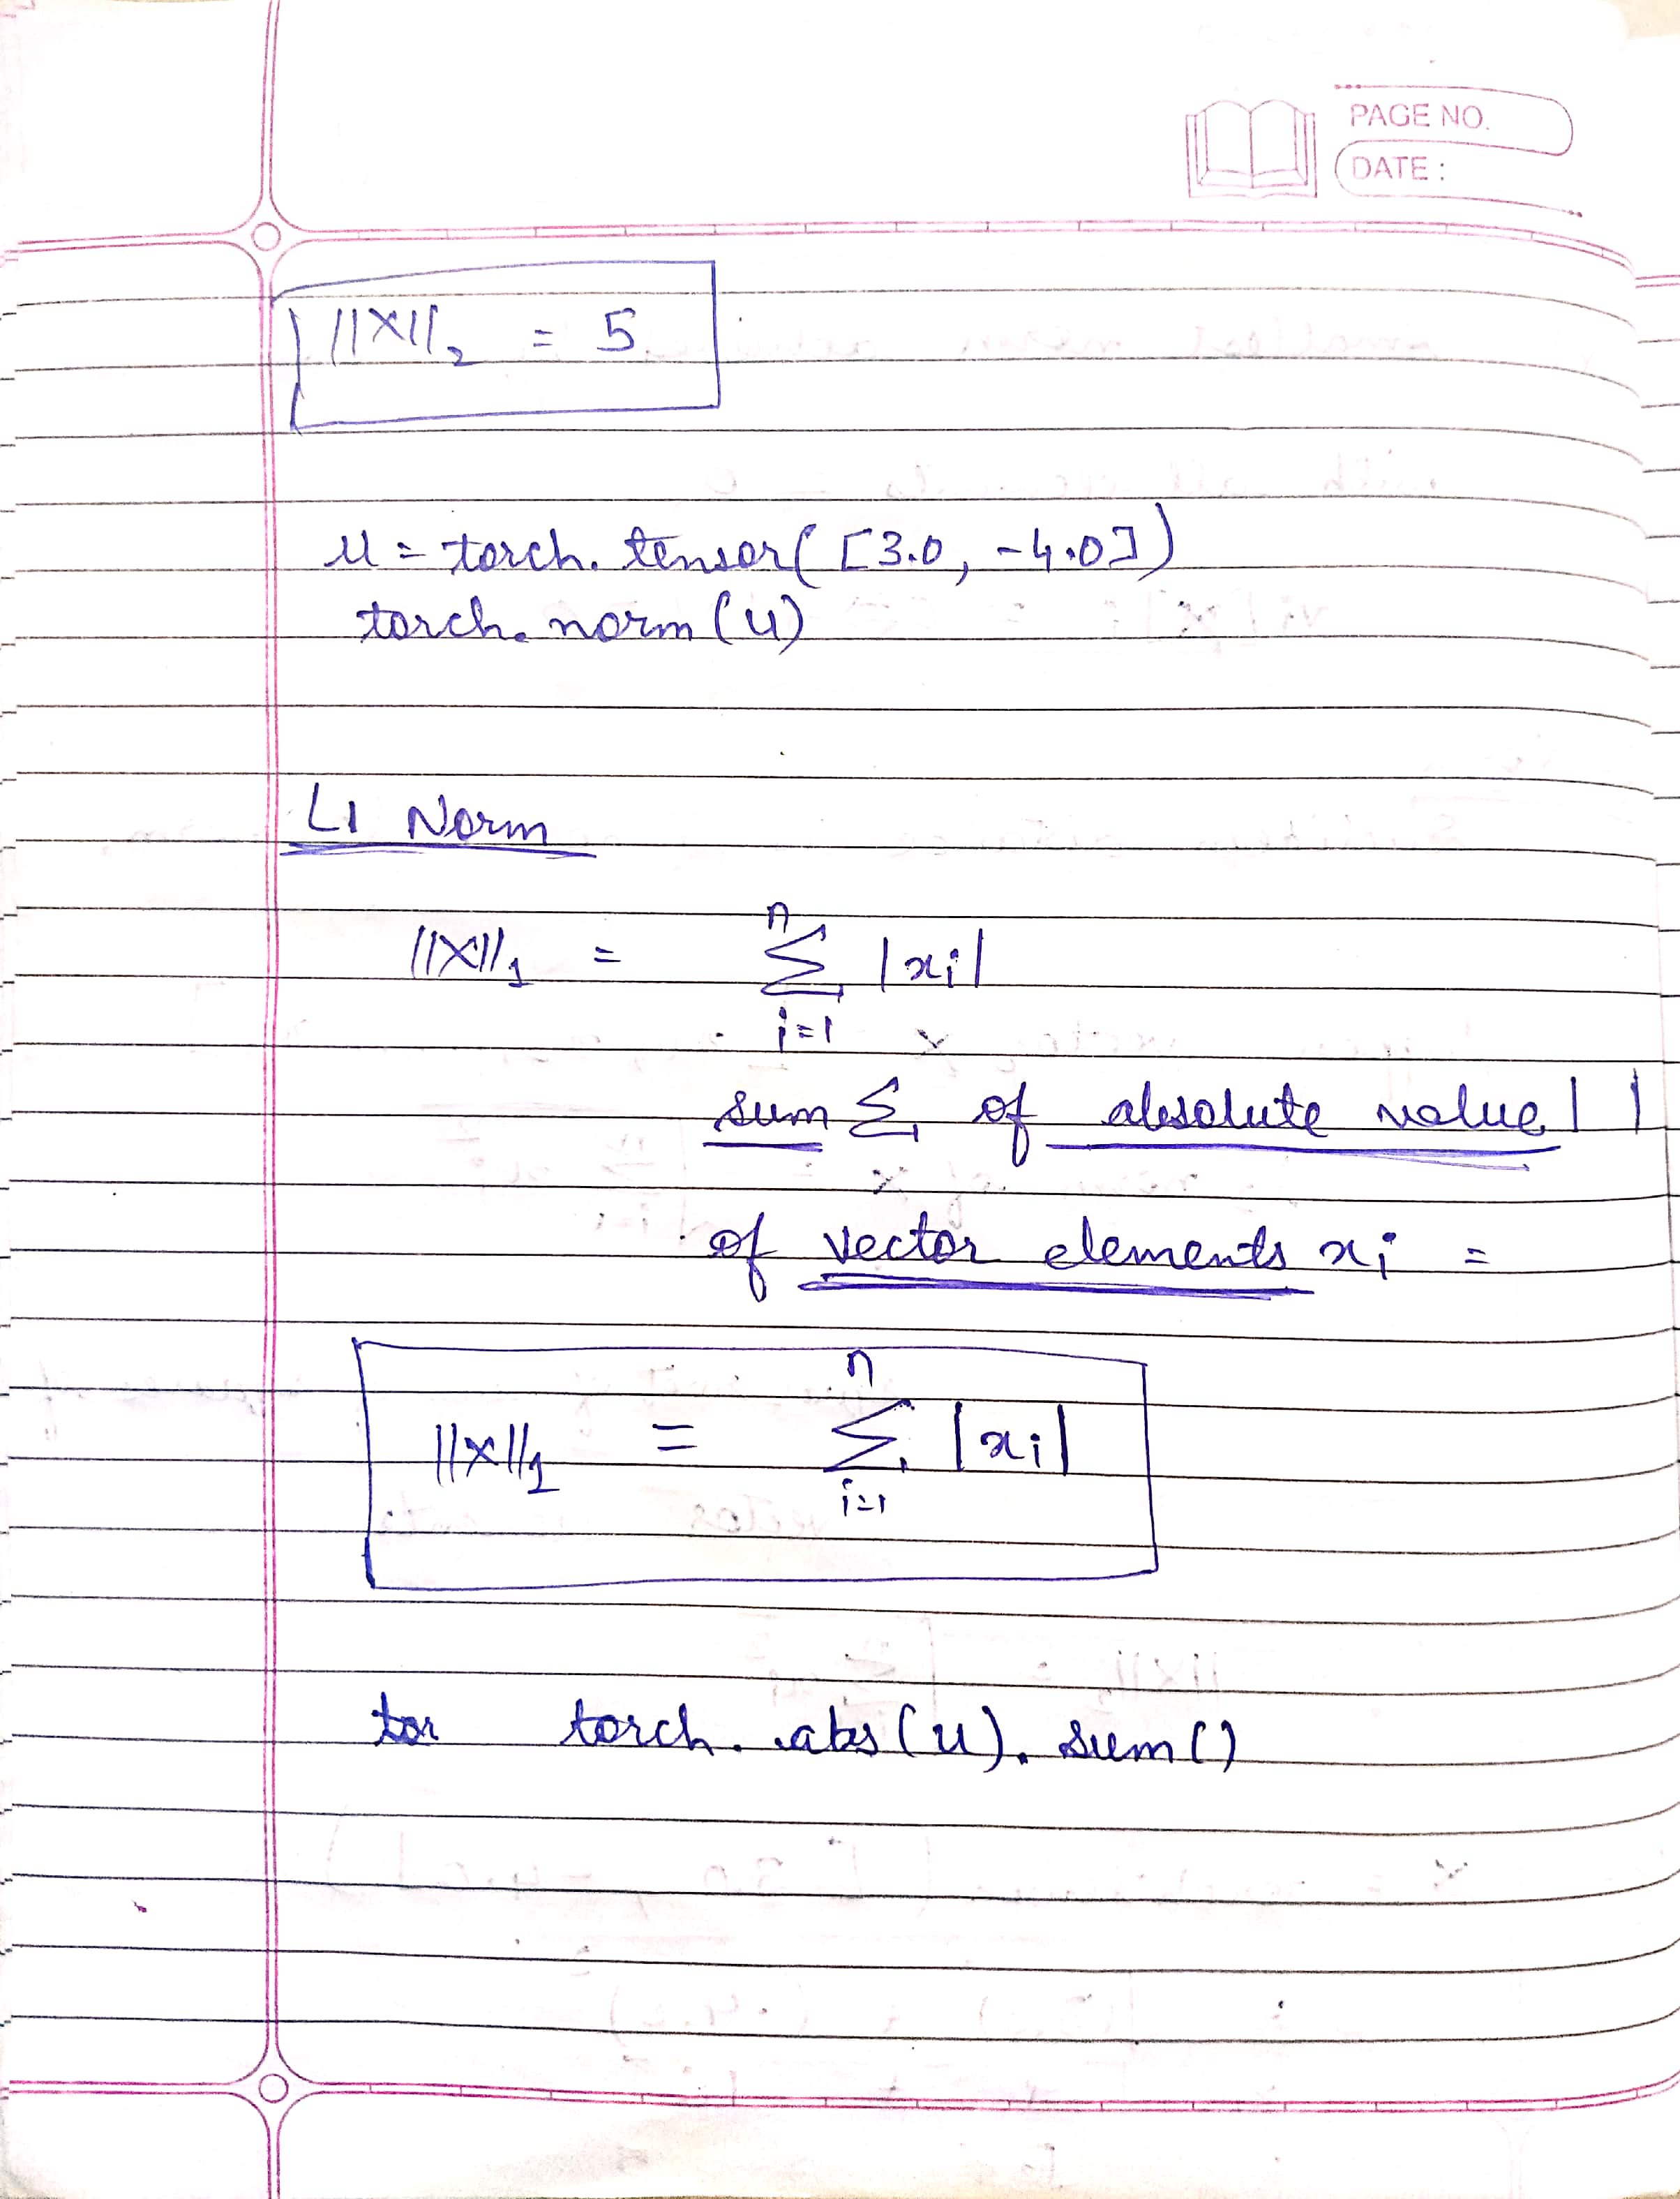 PAGE NO.
DATE :
||X||₂ = 5
u = torch. tensor( [3.0, -4.0])
torch. norm (u)
L1 Norm
||X||₁ = n ∑ i=1 |xᵢ|
sum ∑ of absolute value | |
of vector elements xᵢ =
||X||₁ = n ∑ i=1 |xᵢ|
tor torch. abs (u). sum ()